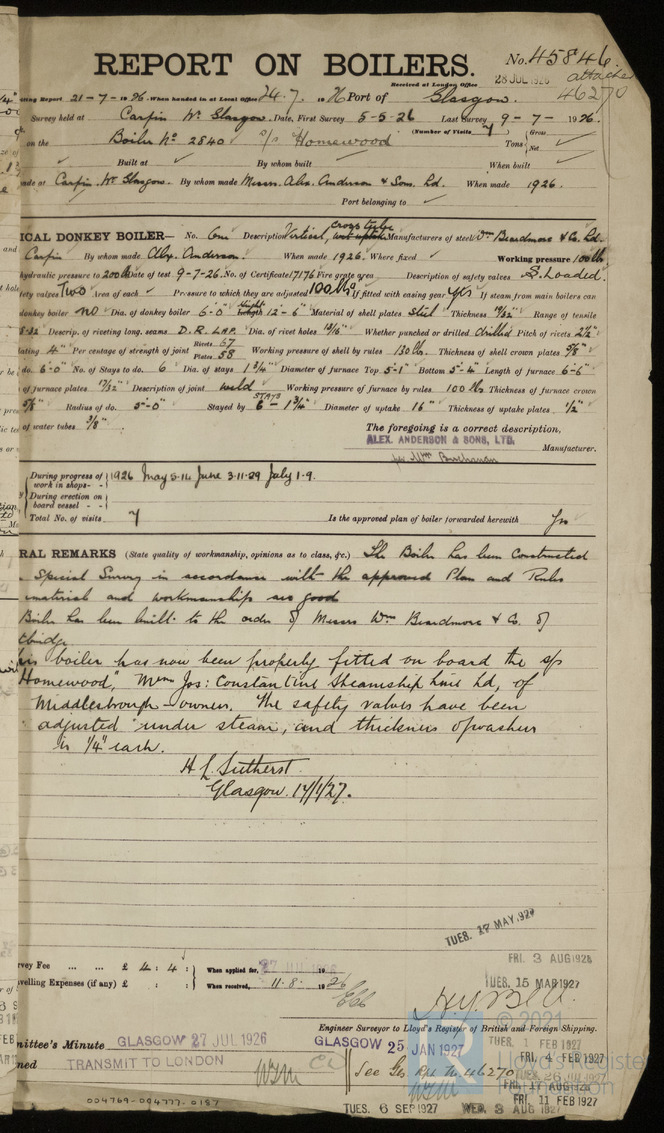 REPORT ON BOILERS.
No. 45846
attached
46270
28 JUL 1926
Received at London Office
ting Report 21-7-1926. When handed in at Local Office 24.7.1926 Port of Glasgow.
Survey held at Carfin Nr Glasgow. Date, First Survey 5-5-26 Last Survey 9-7-1926.
(Number of Visits 7)
on the Boiler No 2840 s/s Homewood Tons Gross Net
Built at By whom built When built
ade at Carfin. Nr Glasgow. By whom made Messrs. Alex. Anderson & Sons. Ld. When made 1926.
Port belonging to
ICAL DONKEY BOILER— No. One Description Vertical, cross tube Manufacturers of steel Wm Beardmore & Co. Ld.
Carfin By whom made Alex. Anderson. When made 1926. Where fixed Working pressure 100 lb
hydraulic pressure to 200 lb Date of test 9-7-26. No. of Certificate 17176 Fire grate area Description of safety valves S. Loaded.
ety valves Two Area of each Pressure to which they are adjusted 100 lbs If fitted with easing gear yes If steam from main boilers can
donkey boiler no Dia. of donkey boiler 6'-0" Height 12'-6" Material of shell plates Steel Thickness 19/32" Range of tensile
8-32 Descrip. of riveting long. seams D. R. LAP. Dia. of rivet holes 13/16" Whether punched or drilled drilled Pitch of rivets 2½"
ating 4" Per centage of strength of joint Rivets 67 Plates 58 Working pressure of shell by rules 130 lb. Thickness of shell crown plates 5/8"
do. 6'-0" No. of Stays to do. 6 Dia. of stays 1¾" Diameter of furnace Top 5'-1" Bottom 5'-4" Length of furnace 6'-6"
of furnace plates 17/32" Description of joint weld Working pressure of furnace by rules 100 lb Thickness of furnace crown
5/8" Radius of do. 5'-0" Stayed by STAYS 6 - 1¾" Diameter of uptake 16" Thickness of uptake plates ½"
of water tubes 3/8"
The foregoing is a correct description,
ALEX. ANDERSON & SONS, LTD.
Manufacturer.
per Wm Buchanan
During progress of work in shops - - 1926 May 5-14 June 3-11-29 July 1-9.
During erection on board vessel - -
Total No. of visits 7 Is the approved plan of boiler forwarded herewith Yes
RAL REMARKS (State quality of workmanship, opinions as to class, &c.) The Boiler has been constructed
Special Survey in accordance with the approved Plan and Rules
material and workmanship are good
Boiler has been built to the order of Messrs Wm Beardmore & Co. of
tbridge
his boiler has now been properly fitted on board the s/s
Homewood", Messrs Jos: Constantine Steamship Line Ld, of
Middlesbrough - owners. The safety valves have been
adjusted under steam, and thickness of washers
is ¼" each.
H L Sutherst.
Glasgow. 14/1/27.
TUES. 17 MAY. 1927
FRI. 3 AUG 1928
TUES. 15 MAR 1927
rvey Fee ... ... £ 4 : 4 : When applied for, 27 JUL 1926 19
velling Expenses (if any) £ : : When received, 11.8.1926
Engineer Surveyor to Lloyd's Register of British and Foreign Shipping.
© 2021
Lloyd's Register
Foundation
ittee's Minute GLASGOW 27 JUL 1926
GLASGOW 25 JAN 1927
TUES. 1 FEB 1927
FRI. 4 FEB 1927
ned TRANSMIT TO LONDON
See Gls. Rpt No 46270
FRI. 11 FEB 1927
004769-004777-0187
TUES. 6 SEP 1927
WED. 3 AUG 1927